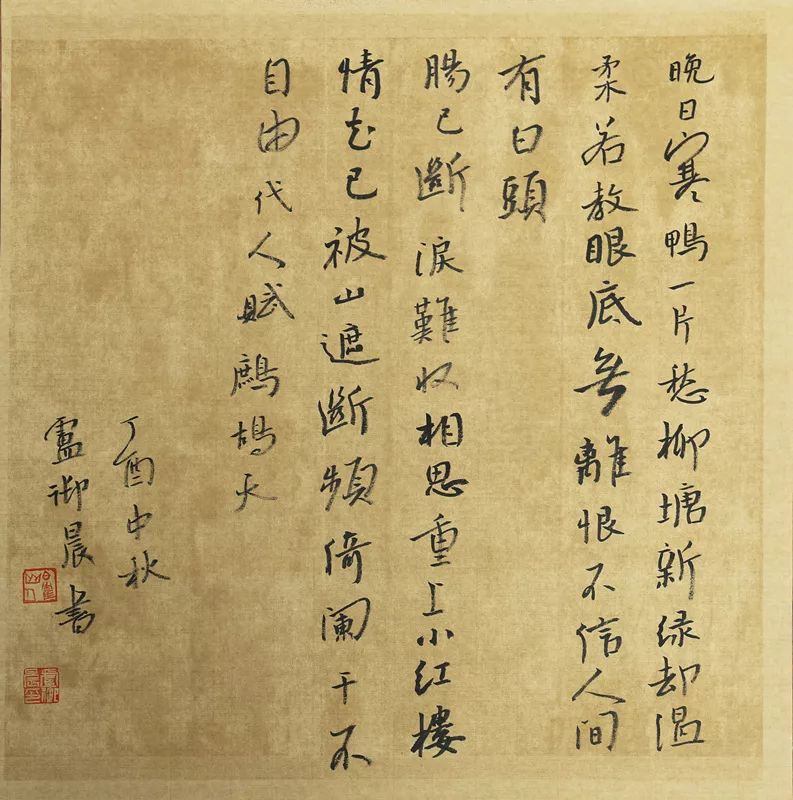 晚日寒鴨一片愁柳塘新绿却温
柔若教眼底無離恨不信人间
有白頭
腸已斷淚難收相思重上小红樓
情知已被山遮斷頻倚阑干不
自由代人赋鷓鴣天
丁酉中秋
盧御晨書